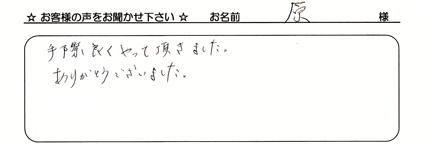 ☆ お客様の声をお聞かせ下さい ☆ お名前 原 様
手際良くやって頂きました。
ありがとうございました。